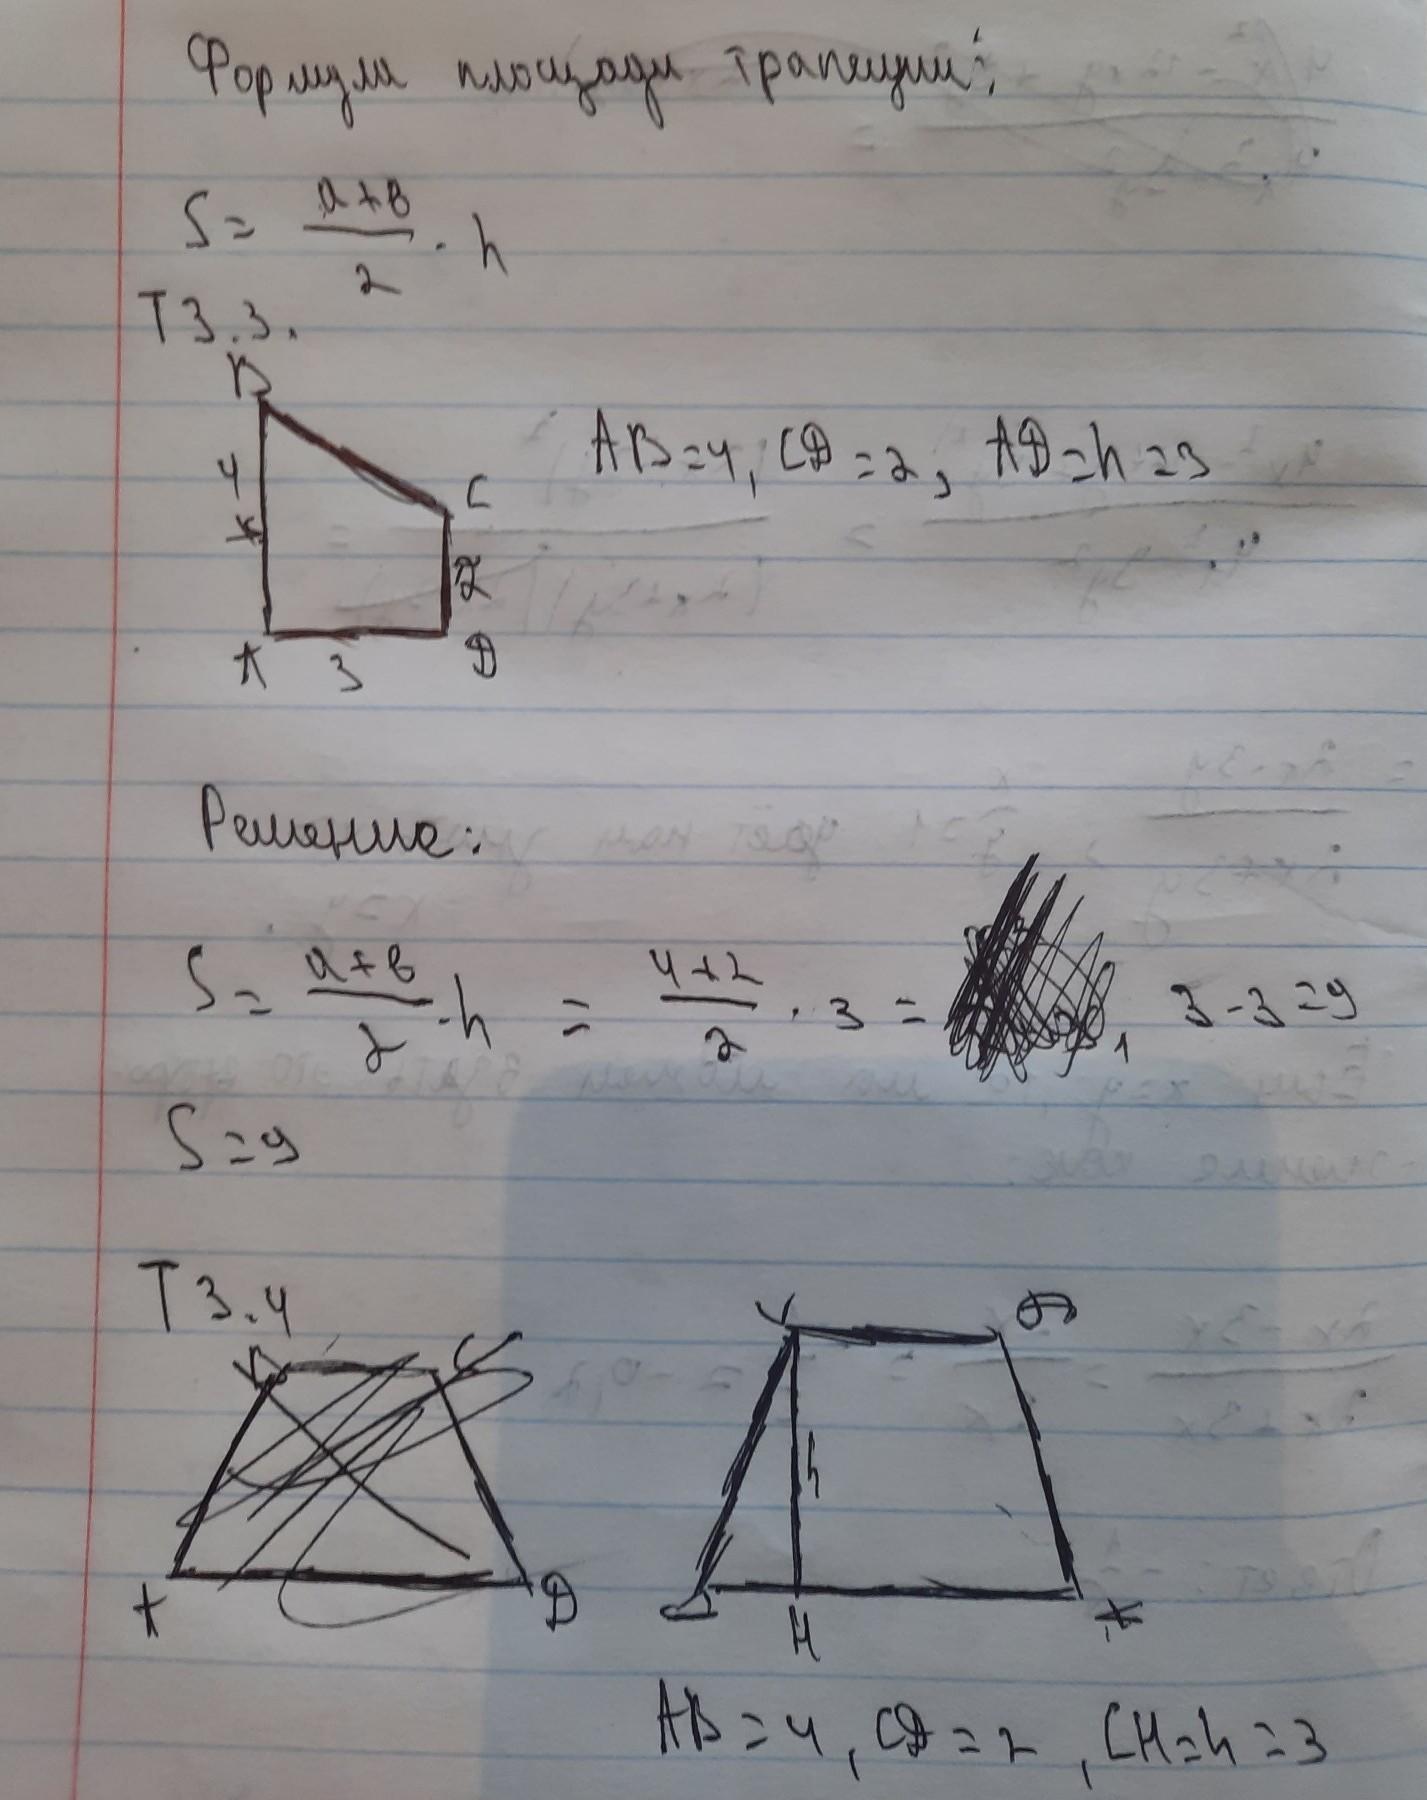 Формула площади трапеции:
S = a+b/2 · h
Т 3.3.
B
4
C
2
A 3 D
AB=4, CD=2, AD=h=3
Решение:
S = a+b/2 · h = 4+2/2 · 3 = 3·3=9
S=9
Т 3.4
B C
A D
h
H
AB=4, CD=2, CH=h=3